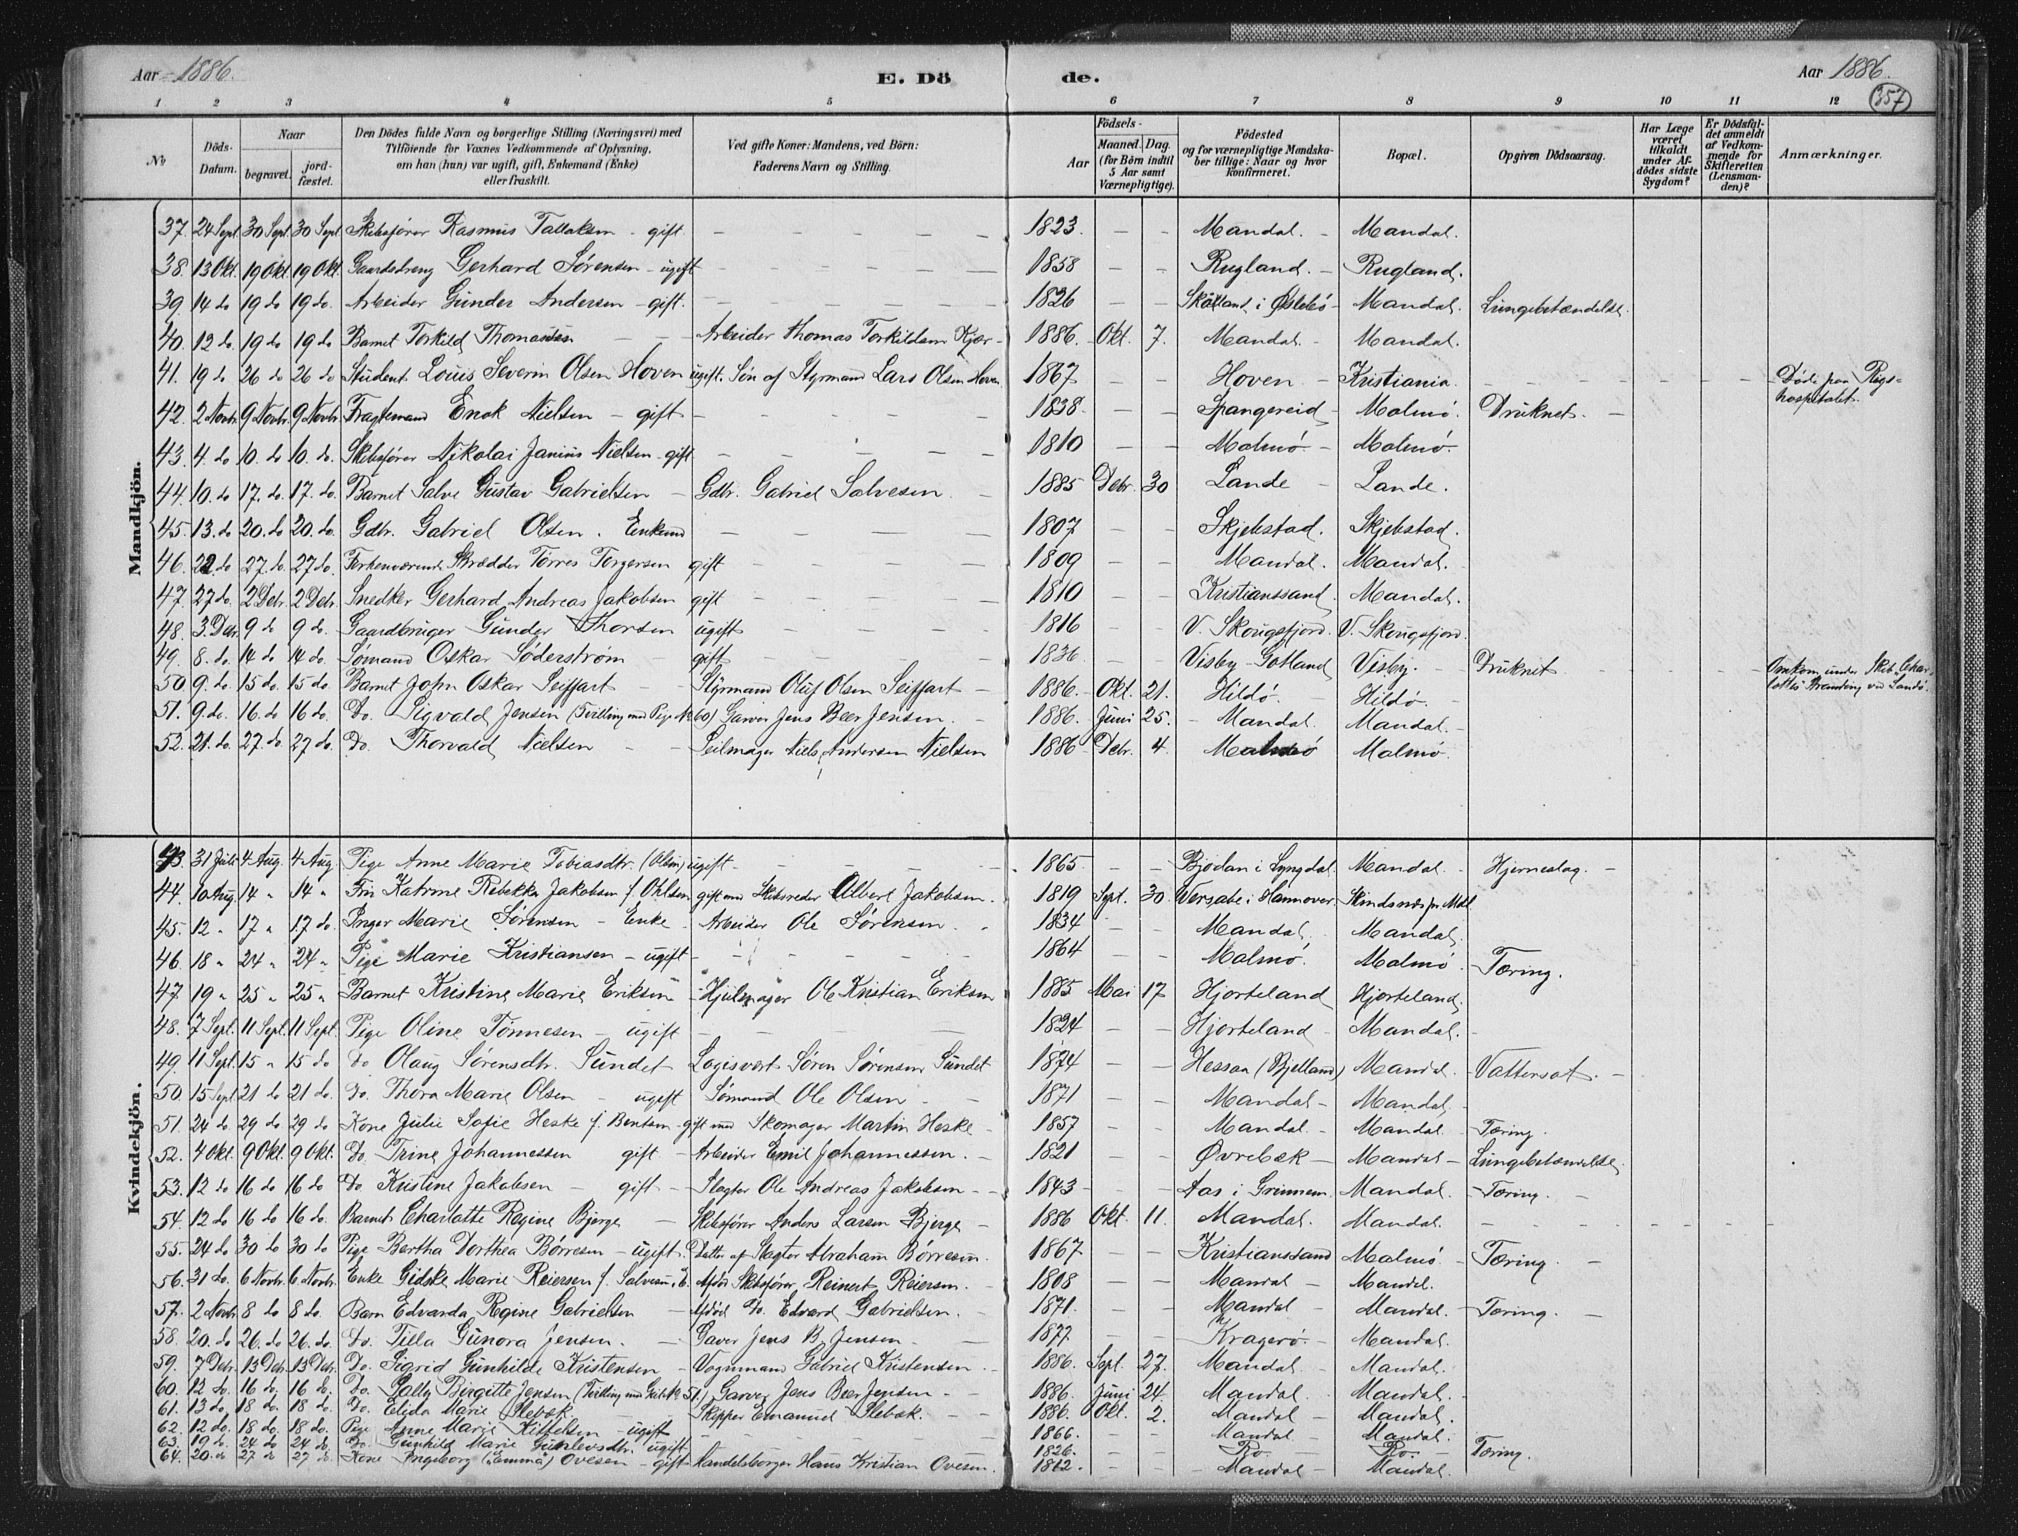 Aar 1886. E. Dö de. Aar 1886.
357
1 2 3 4 5 6 7 8 9 10 11 12
No Döds-Datum. Naar begravet. jordfæstet. Den Dödes fulde Navn og borgerlige Stilling (Næringsvei) med Tilföiende for Voxnes Vedkommende af Oplysning, om han (hun) var ugift, gift, Enkemand (Enke) eller fraskilt. Ved gifte Koner: Mandens, ved Börn: Faderens Navn og Stilling. Födsels- Aar Maaned. Dag. (for Börn indtil 5 Aar samt Værnepligtige). Födested og for værnepligtige Mandskaber tillige: Naar og hvor konfirmeret. Bopæl. Opgiven Dödsaarsag. Har Læge været tilkaldt under Afdödes sidste Sygdom? Er Dödsfaldet anmeldt af Vedkommende for Skifteretten (Lensmanden)? Anmærkninger.
Mandkjön.
37. 24 Sept 30 Sept 30 Sept Skibsfører Rasmus Tallaksen - gift - 1823. - - Mandal. - Mandal.
38. 13 Okt. 19 Okt. 19 Okt. Gaardsdreng Gerhard Sørensen - ugift - 1858 - - Rugland. - Rugland.
39. 14 do 19 do 19 do. Arbeider Gunder Andersen - gift. - 1826 - - i Øslebø - Mandal. Lungebetændelse.
40. 12 do. 19 do 19 do Barnet Torkild Thomassen - - Arbeider Thomas Torkildsen Kjær - 1886. Okt. 7. Mandal - Mandal.
41. 19 do 26 do 26 do Student Louis Severin Olsen Hoven ugift. Søn af Styrmand Lars Olsen Hoven 1867 - - Hoven - Kristiania. - Døde paa Rigshospitalet.
42. 2 Novbr. 9 Novbr. 9 Novbr. Fragtemand Enok Nielsen - gift - 1838 - - Spangereid - Malmö. Druknet. -
43. 4. do 10. do 10. do. Skibsfører Nikolai Nielsen - gift - 1810 - - Malmö. - Malmö.
44. 10. do 17. do. 17. do. Barnet Salve Gustav Gabrielsen - Gdbr. Gabriel Salvesen. - 1885 Debr. 30 Lande - Lande.
45. 13. do 20. do 20. do. Gdbr. Gabriel Olsen. Enkemd - 1807 - - Skjebstad. Skjebstad.
46. 22. do 27. do. 27 do. Forhenværende Skrædder Tørres Torgersen gift - 1809 - - Mandal. Mandal.
47. 27 do. 2 Debr. 2 Debr. Snedker Gerhard Andreas Jakobsen gift - 1810 - - Kristianssand. Mandal.
48. 3. Debr. 9 do 9 do. Gaardbruger Gunder Thorsen ugift - 1816 - - V. Skougsfjord. V. Skougsfjord.
49. 8. do. 14 do 14 do. Sømand Oskar Søderstrøm - gift - 1836 - - Visby - Gotland Visby. - Druknet - Omkom under Skib Charlottes Stranding ved Landö.
50. 9. do. 15 do 15 do. Barnet John Oskar Seiffart - Styrmand Oluf Olsen Seiffart - 1886. Okt. 21. Hildö. - Hildö.
51. 9. do. 16. do 16 do. Do. Sigvald Jensen (Tvilling med Pige No 60) Garver Jens Beer Jensen. - 1886. Juni 25. - Mandal. Mandal.
52. 21. do. 27. do 27 do. Do. Thorvald Nielsen - - Seilmager Niels Andersen Nielsen 1886 Debr. 4. Malmö Malmö.
Kvindekjön.
43. 31 Juli 4 Aug. 4 Aug. Pige Anne Marie Tobiasdtr. (Olsen) ugift. - 1865 - - i Lyngdal Mandal. - Hjerneslag. -
44. 10 Aug. 14 " 14 " Fru Katrine Rebekka Jakobsen f. Ohlsen gift med Skibsreder Albert Jakobsen. 1819 Sept. 30. i Hannover.
45. 12 " 17 " 17 do. Inger Marie Sørensen - Enke - Arbeider Ole Sørensen. 1834 - - Mandal. Mandal.
46. 18 " 24 " 24 " Pige Marie Kristiansen - ugift - 1864 - - Malmö. Malmö. Tæring.
47. 19 " 25 " 25 " Barnet Kristine Marie Eriksen - Hjulmager Ole Kristian Eriksen 1885 Mai 17 Hjorteland Hjorteland.
48. 7 Sept. 11 Sept. 11 Sept. Pige Oline Tønnesen - ugift - 1824 - - Hjorteland - Mandal. -
49. 11 Sept. 15 " 15 do Do Olaug Sørensdtr. Sundet Logisvert Søren Sørensen Sundet 1874 - - Hessaa (Bjelland) Mandal. Vattersot. -
50. 15 Sept 21 do 21 do. Do. Thora Marie Olsen - ugift Sømand Ole Olsen - 1871 - - Mandal - Mandal.
51. 24 do. 29 do 29 do Kone Julie Sofie Heske f. Bentsen - gift med Skomager Martin Heske - 1857 - - Mandal. - Mandal. - Tæring.
52. 4 Okt. 9 Okt. 9 Okt. Do. Trine Johannessen gift - Arbeider Emil Johannessen. - 1821 - - Øvrebæk - Mandal - Lungebetændelse.
53. 12 do 16 do 16 do Do Kistine Jakobsen - gift - Slagter Ole Andreas Jakobsen - 1843 - - Aas i Grinnem. Mandal. - Tæring. -
54. 12 do 16 do 16 do. Barnet Charlotte Regine Bjerge - Skibsfører Anders Larsen Bjerge - 1886 Okt. 11. Mandal. Mandal. -
55. 24 do 30 do 30 do Pige Bertha Dorthea Børresen - ugift. Datter af Slagter Abraham Børresen. 1867 - - Kristianssand Malmö. - Tæring. -
56. 31 do. 6 Novbr. 6 Novbr. Enke Gidske Marie Reiersen f. Salvesen Afdøde Skibsfører Reinert Reiersen. - 1808 - - Mandal - Mandal.
57. 2 Novbr. 8 do 8 do. Barn Edvarda Regine Gabrielsen - Afdød Do. Edvard Gabrielsen. - 1871. - - Mandal Mandal. - Tæring. -
58. 20 do 26. do 26. do. Do. Tilla Gunora Jensen. - Garver Jens B. Jensen - 1877 - - Kragerø. - Mandal.
59. 7 Debr. 13 Debr. 13 Debr. Do. Sigrid Gunhilde Kristensen - Vognmand Gabriel Kristensen - 1886. Sept. 27. Mandal. - Mandal.
60. 12 do. 16 do. 16 do. Do. Birgitte Jensen (Tvilling med Gut No 51.) Garver Jens Beer Jensen - 1886. Juni 24. Mandal. Mandal.
61. 13 do. 18 do. 18 do. Do. Elida Marie Slebæk. - Skipper Emanuel Slebæk. - 1886. Okt. 2. Mandal - Mandal.
62. 12 do. 18 do. 18 do. Pige Anne Marie - ugift - 1866. - - Mandal - Mandal.
63. 19 do. 24 do 24 do Do. Gunhild Marie Gunlevsdtr. ugift. - 1826. - - Ro. - Ro. - Tæring.
64. 20. do 27 do 27 do. Kone Ingeborg (Emma) Ovesen - gift - Handelsborger Hans Kristian Ovesen. 1812. - - Mandal - Mandal.